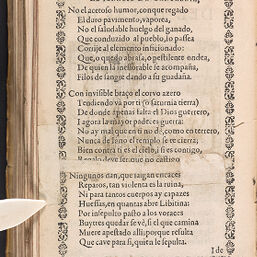 No el acetoso humor, con que regado
El duro pavimento, vaporea,
No el saludable huelgo del ganado,
Que conduzido al pueblo, lo passea
Corrije al elemento inficionado:
Que, o que do abrasa, o pestilente ondea,
De quien la Miserable se acompaña,
Filos de sangre dando a su guadaña.
Con invisible braço el corvo azero
Tendiendo va por ti (o saturnia tierra)
De donde apenas falta el Dios guerrero,
I agora la mayor padeces guerra.
No ay mal que en ti no dè, como en terrero,
Nunca de Iano el templo se te cierra;
Bien contra ti es el cielo, i si es contigo,
Regalo deve ser, que no castigo
Ningunos dan, que saigan encaces
Reparos, tan violenta es la ruina,
Ni para tantos cuerpos ay capazes
Huessas, en quantas abre Libitina:
Por insepulto pasto a los voraces
Buytres quedar se vè, si el que camina
Muere apestado alli, porque resulta
Que cave para si, quien le sepulta.
I de